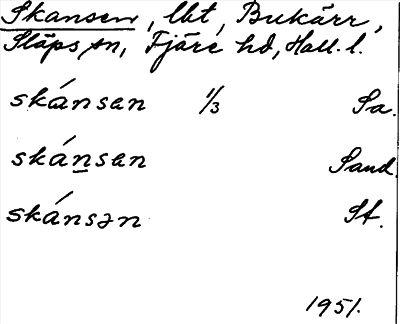 Skansen, lbt, Bukärr,
Släps sn, Fjäre hd, Hall. l.
skánsen 1/3 Sa.
skánsen Sand.
skánsən St.
1951.